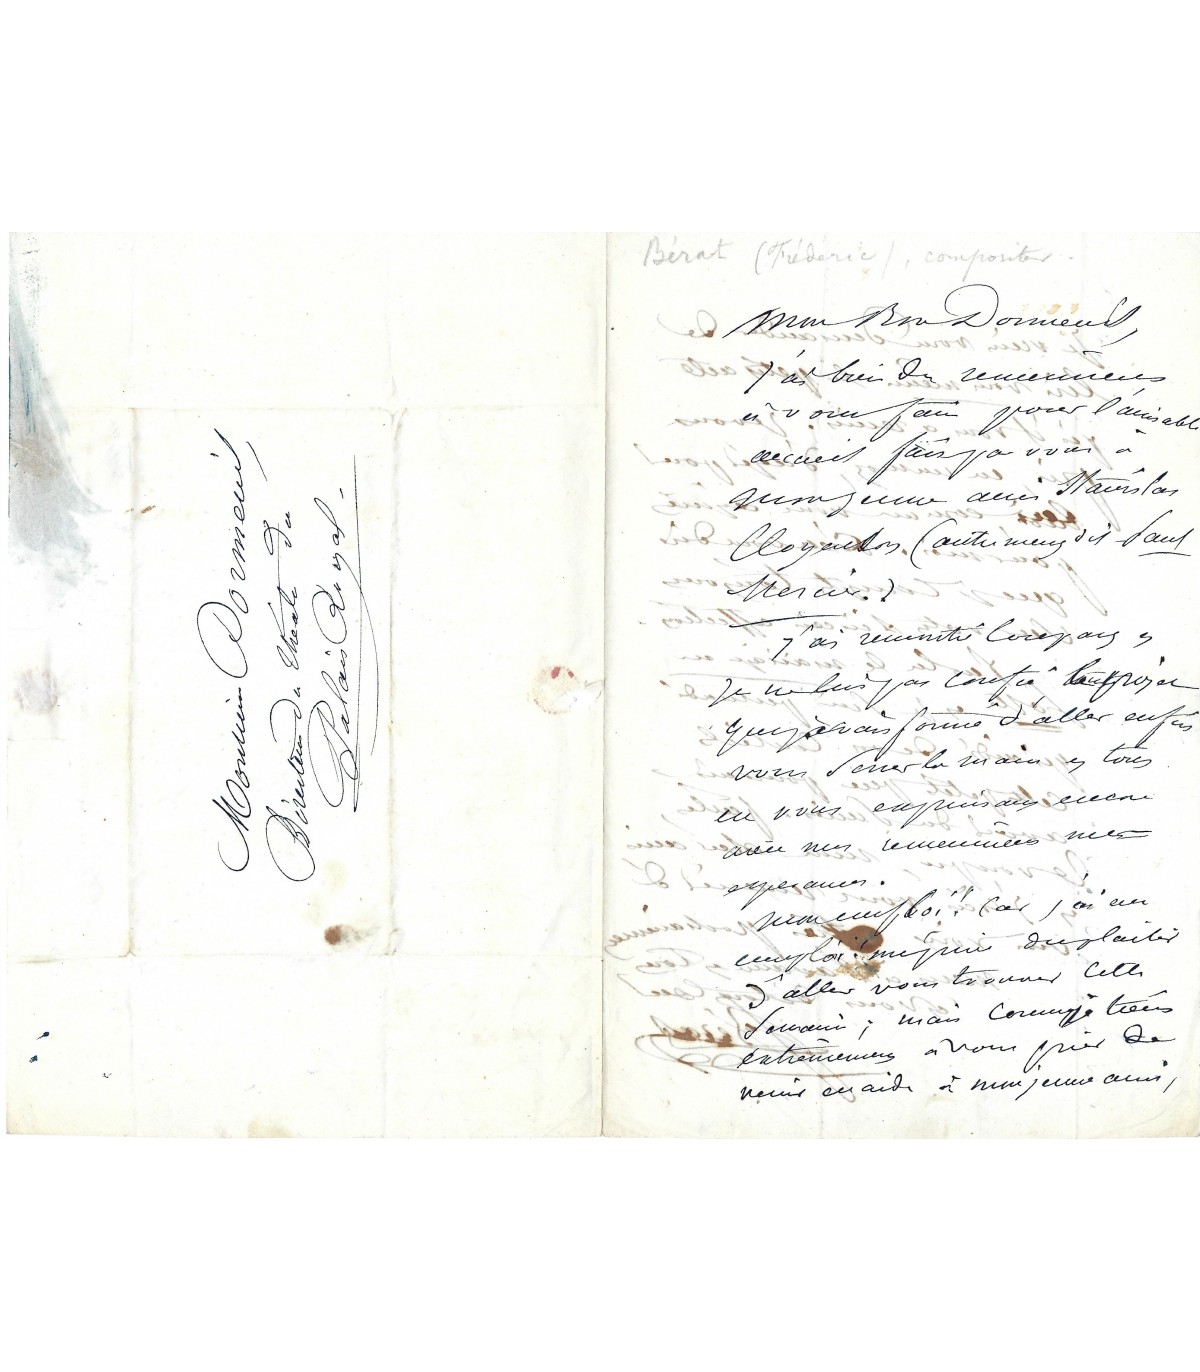 Monsieur Dormeuil,
Directeur du théâtre du
Palais Royal.
Bérat (Fréderic), compositeur.
Mon Bon Dormeuil,
J'ai bien des remercimens
à vous faire pour l'aimable
accueil fait par vous à
mon jeune ami Stanislas
(autrement dit Paul
Mercier.)
J'ai rencontré et
je ne lui ai pas confié le projet
que j'avais formé d'aller enfin
vous serrer la main et tout
en vous exprimant encore
avec mes remerciemens mes
esperances.
mon emploi!! Car j'ai un
emploi! me prive du plaisir
d'aller vous trouver cette
Semaine; mais comme je tiens
extrêmement à vous prier de
venir en aide à mon jeune ami,